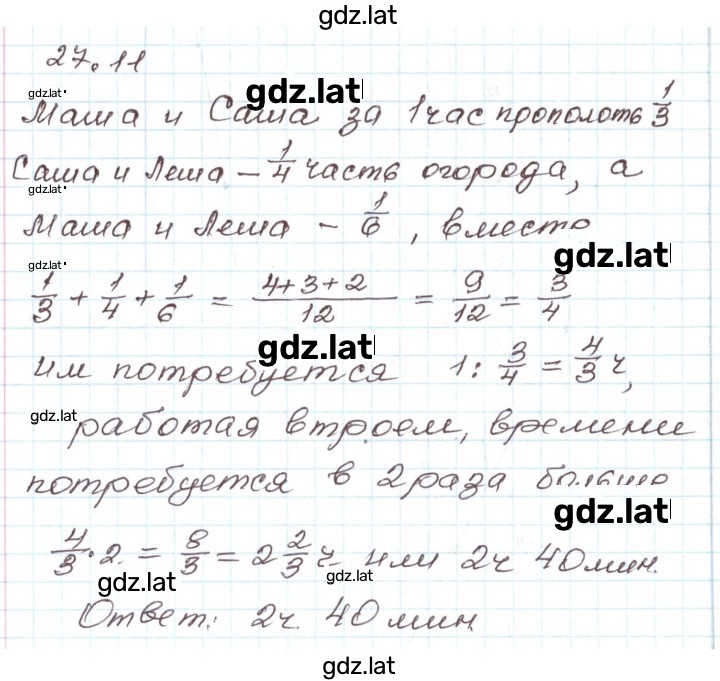 gdz.lat
27.11
gdz.lat
gdz.lat
Маша и Саша за 1 час прополоть 1/3
Саша и Леша – 1/4 часть огорода, а
gdz.lat
Маша и Леша – 1/6, вместо
gdz.lat
gdz.lat
1/3 + 1/4 + 1/6 = (4+3+2)/12 = 9/12 = 3/4
gdz.lat
им потребуется 1 : 3/4 = 4/3 ч,
gdz.lat
работая втроем, времени
потребуется в 2 раза больше
gdz.lat
4/3 · 2 = 8/3 = 2 2/3 ч или 2ч 40 мин.
gdz.lat
gdz.lat
Ответ: 2ч. 40 мин.
gdz.lat